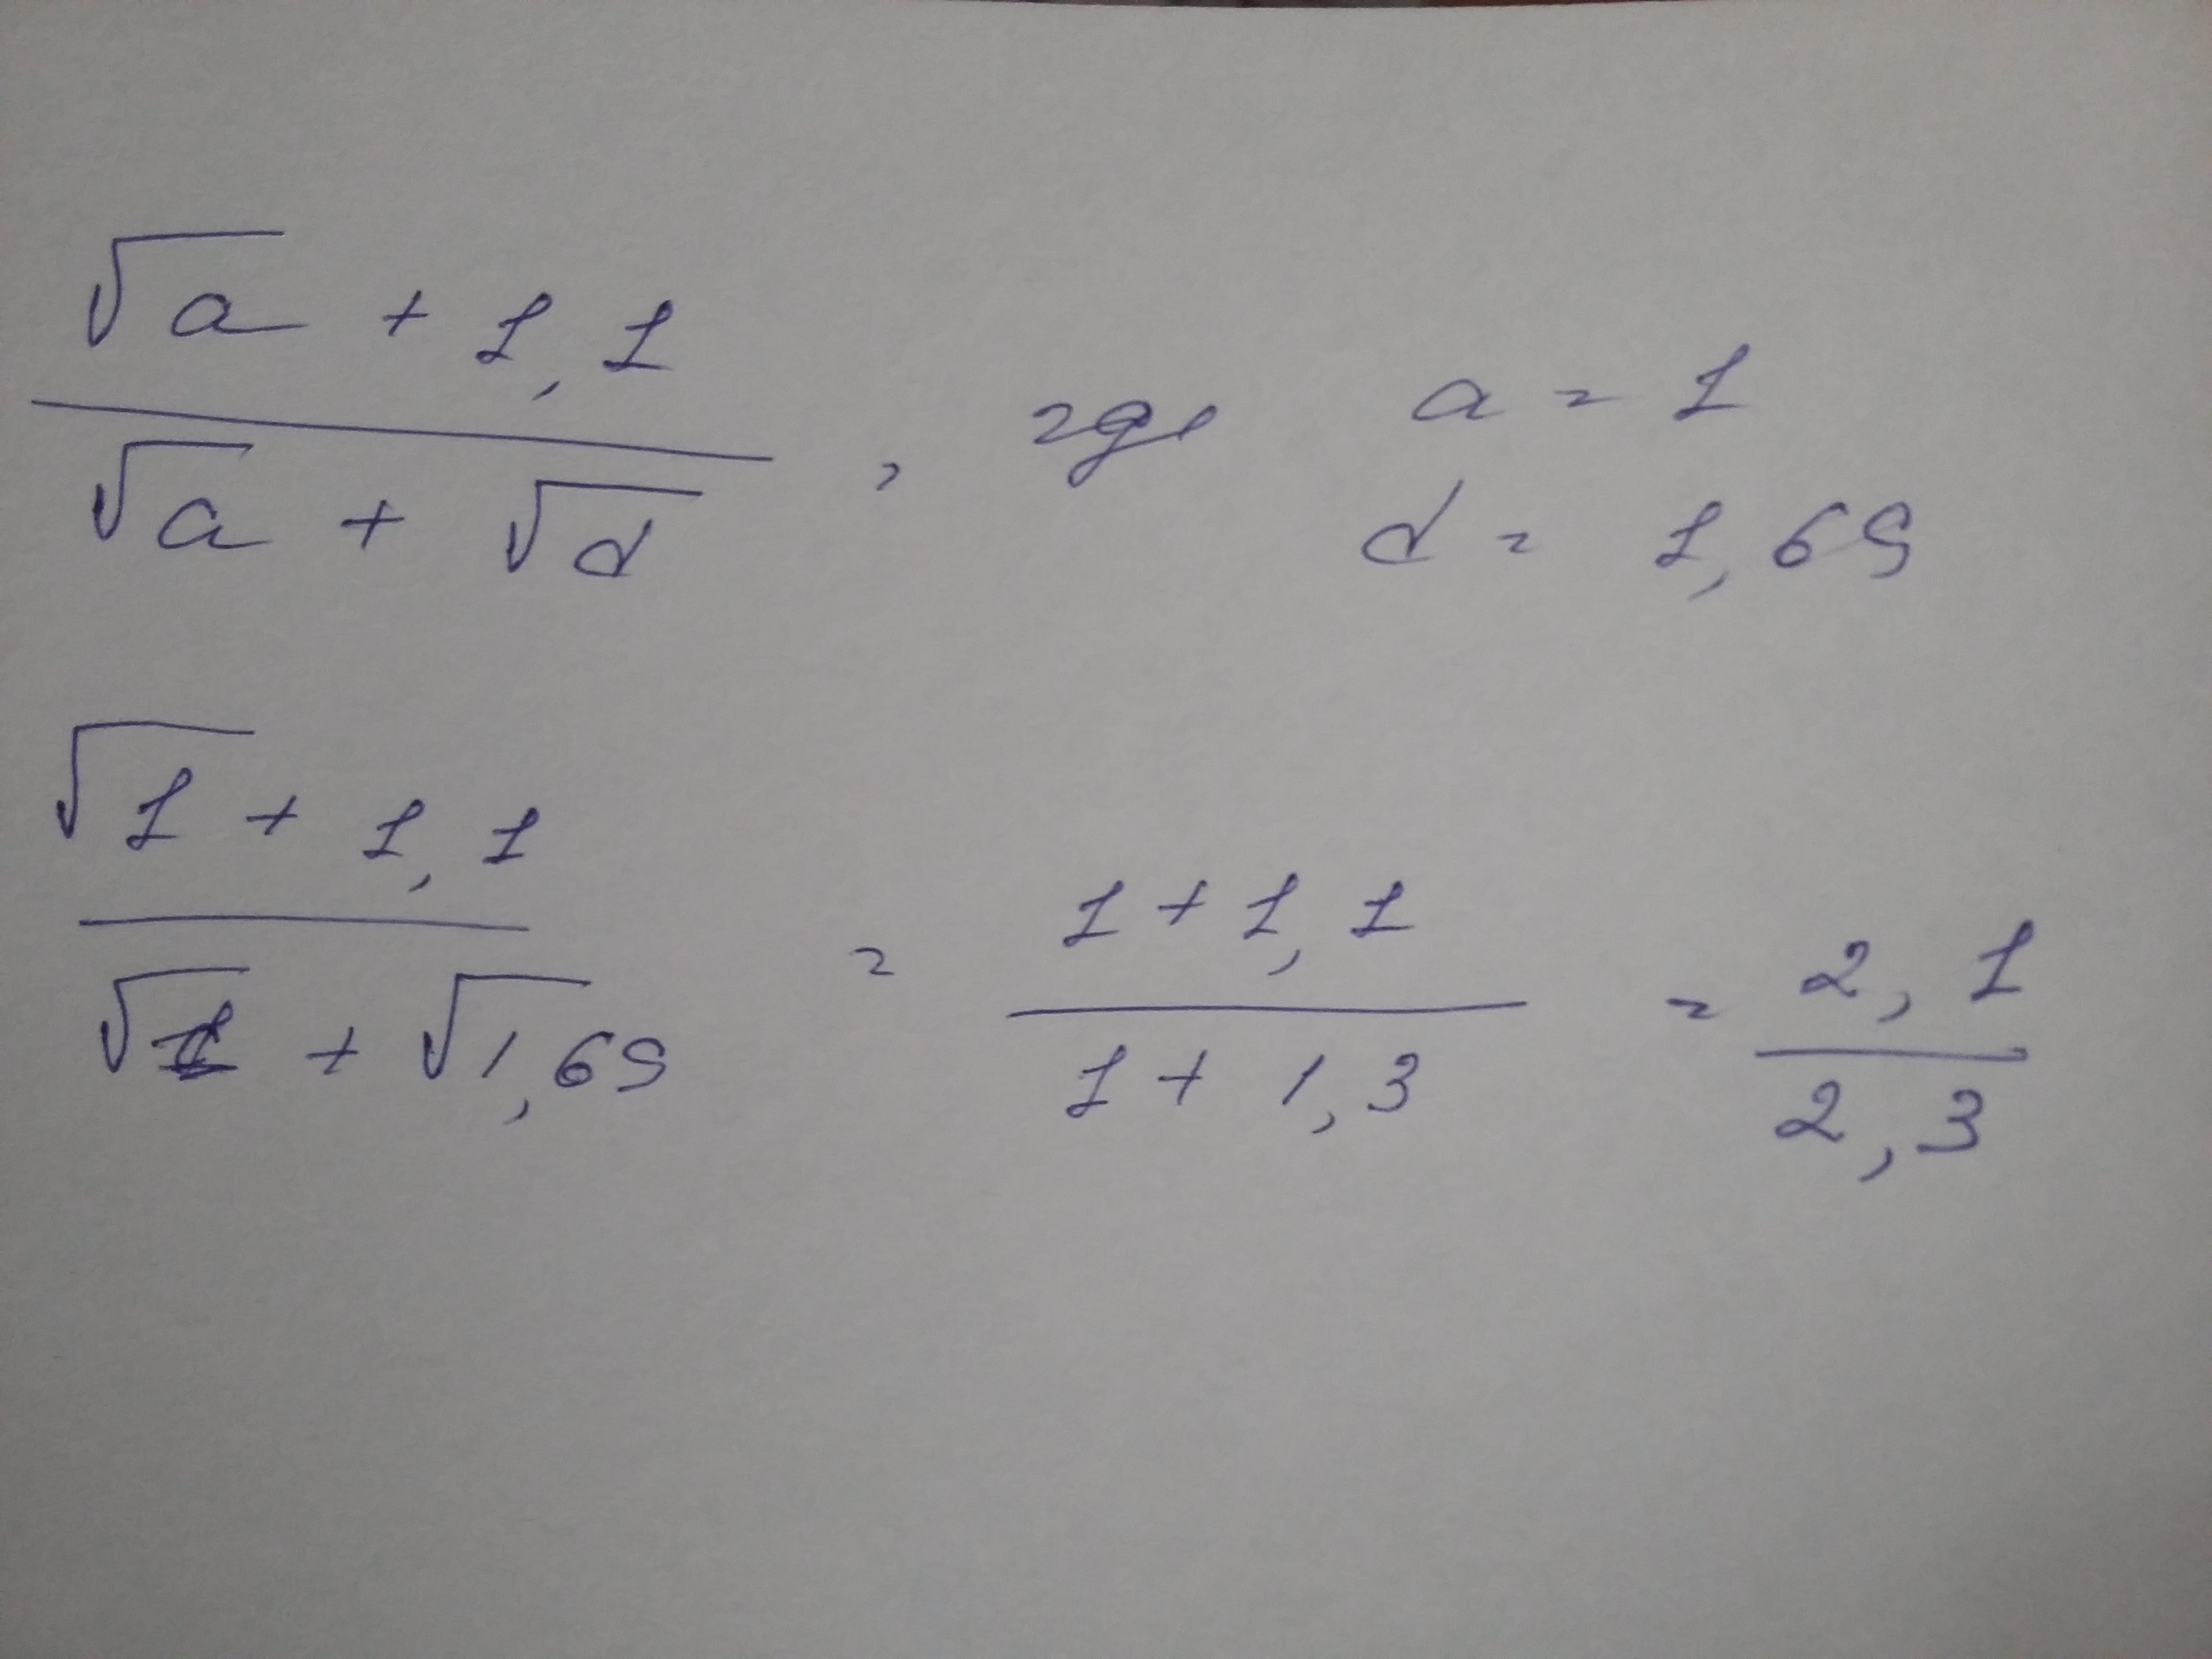 √a + 1,1
√a + √d , где a = 1
d = 1,69
√1 + 1,1
√1 + √1,69 = 1 + 1,1 / 1 + 1,3 = 2,1 / 2,3